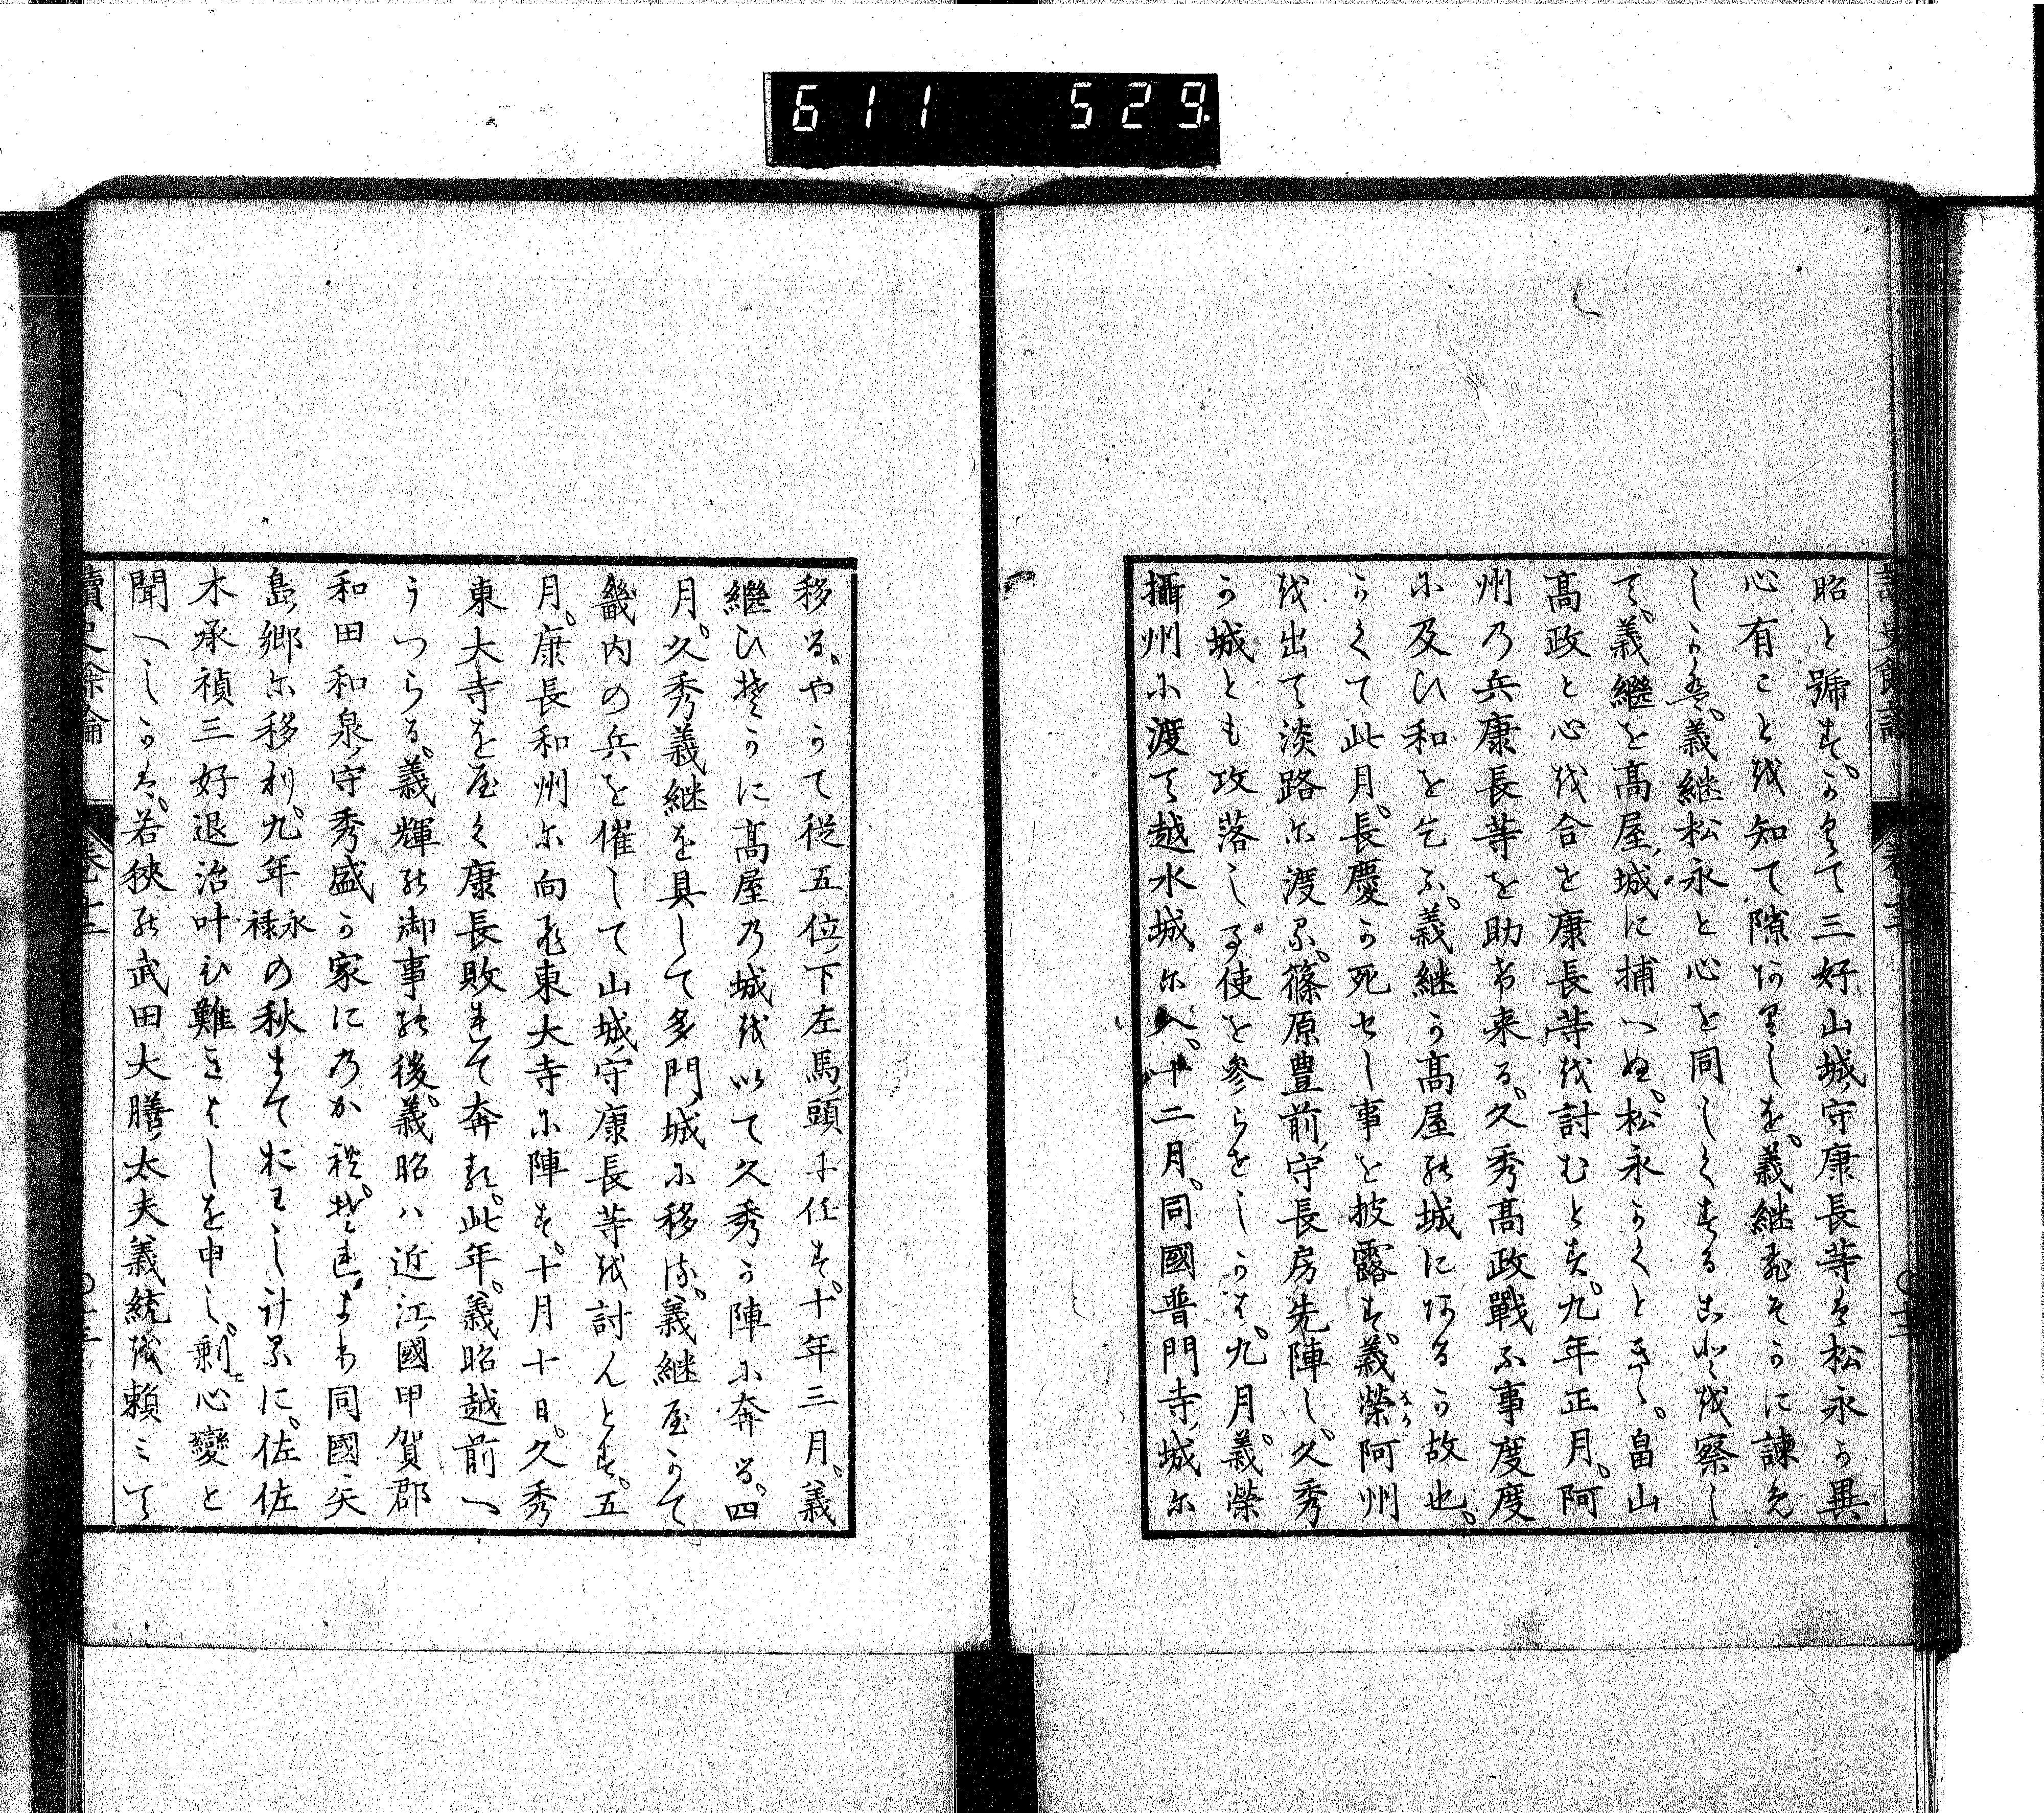 611 529
昭と號す。かくて三好山城守康長等は松永か異
心有ことを知て隙ありしを。義継ひそかに諫え
しかは。義継松永と心を同しくするこゝろを察し
て。義継を髙屋城に捕へぬ。松永かくときゝ。畠山
髙政と心を合せ康長等を討むとす。九年正月。阿
州乃兵康長等を助け来る。久秀髙政戰ふ事度度
に及ひ和を乞ふ。義継か髙屋の城にあるか故也。
かくて此月。長慶か死せし事を披露す。義榮阿州
を出て淡路に渡る。篠原豊前守長房先陣し。久秀
か城とも攻落し。使を參らせしかは。九月。義榮
攝州に渡て越水城に入。十二月。同國普門寺城に
移る。やかて従五位下左馬頭に任す。十年三月。義
繼ひそかに髙屋乃城を以て久秀か陣に奔る。四
月。久秀義継を具して多門城に移る。義継屋かて
畿内の兵を催して山城守康長等を討んとす。五
月。康長和州に向ひ東大寺に陣す。十月十日。久秀
東大寺を屋く康長敗れて奔る。此年。義昭越前へ
うつらる。義輝の御事の後。義昭ハ近江國甲賀郡
和田和泉守秀盛か家にのかれ。それより同國矢
島郷に移り。九年永禄の秋まておはし計るに。佐佐
木承禎三好退治叶ひ難きよしを申し。剰心變と
聞へしかは。若狹の武田大膳太夫義統を頼ミて
讀史餘論